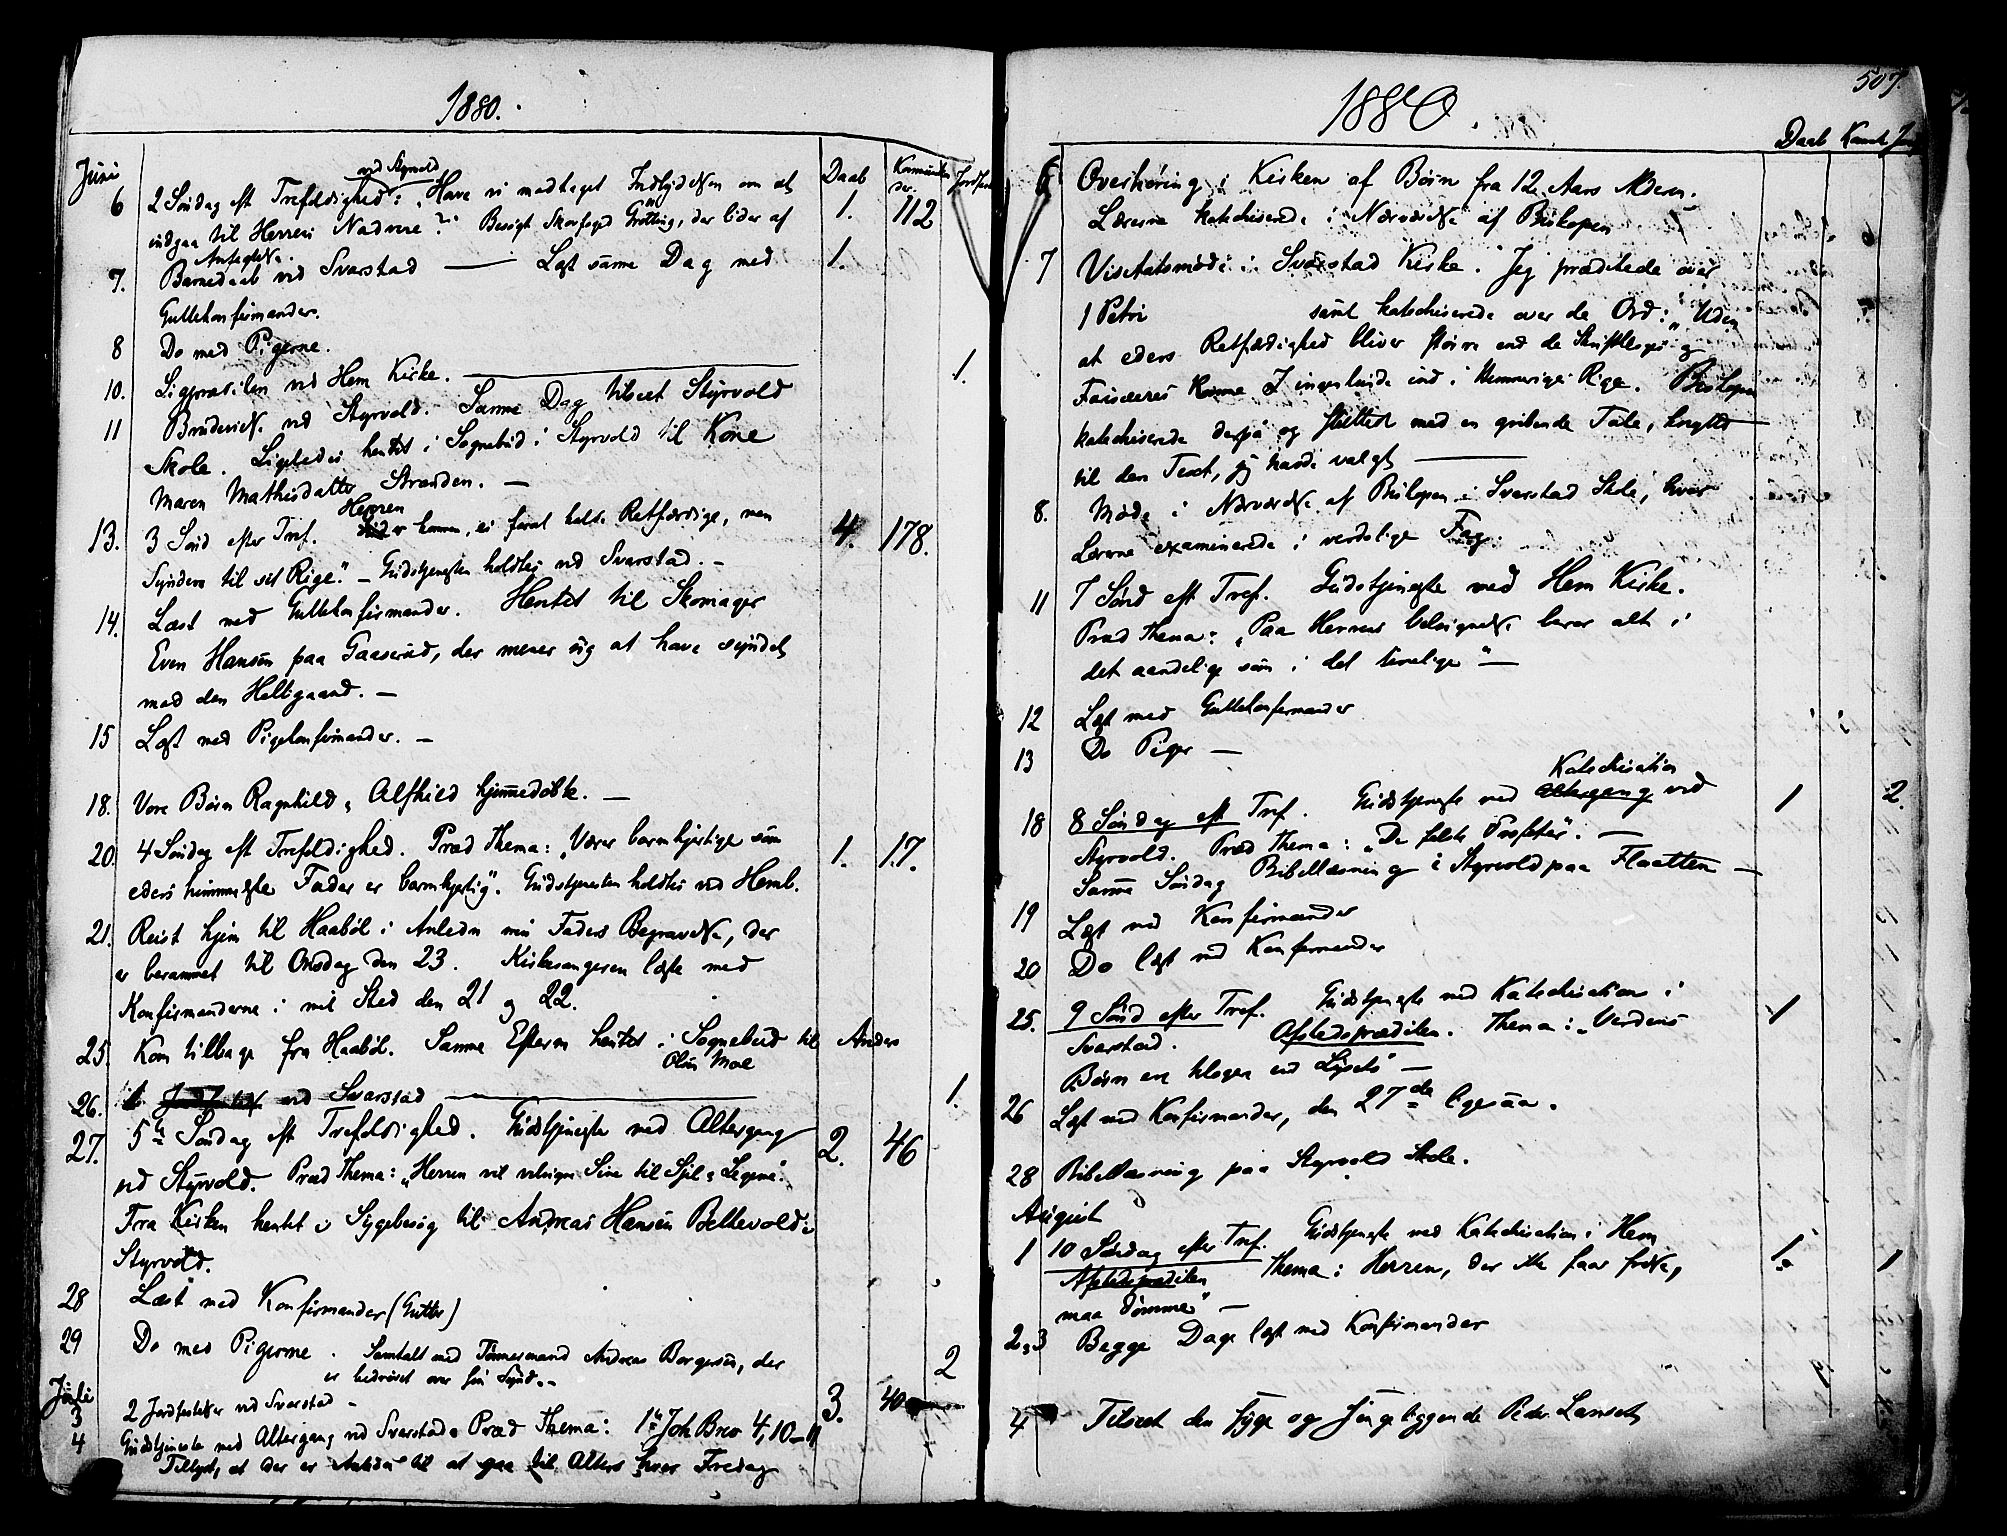 1880.
Juni Daab Kommunikan der Jordfæst
ved Styrvold
6 2 Søndag eft Trefoldighed: „Have vi modtaget Indbydelsen om at 1. 112
indgaa til Herrens Nadvere"? Besøgt Skovfoged Grøtting, der lider af
Anfægtelse.
7. Barnedaab ved Svarstad — Læst samme Dag med 1.
Guttekonfirmander.
8 Do med Pigerne.
10. Ligpræken ved Hem Kirke. — 1.
11 Brudevielse ved Styrvold. Samme Dag tilseet Styrvold
Skole. Ligeledes hentet i Sognebud i Styrvold til Kone
Maren Mathisdatter Stranden. —
Herren
13. 3 Sønd efter Tref. er kommen, ei forat kalde Retfærdige, men 4. 178.
Syndere til sit Rige". – Gudstjenesten holdtes ved Svarstad. –
14. Læst med Guttekonfirmander. Hentet til Skomager
Even Hansen paa Gaaserud, der mener sig at have syndet
mod den Helligaand. —
15 Læst med Pigekonfirmander. —
18. Vore Børn Ragnhild & Alfhild hjemmedøbte. —
20. 4 Søndag eft Trefoldighed. Præd Thema: „Værer barmhjertige som 1. 17.
eders himmelske Fader er barmhjertig". Gudstjenesten holdtes ved Hem.
21. Reist hjem til Haabøl i Anledn min Faders Begravelse, der
er berammet til Onsdag den 23. Kirkesangeren læste med
Konfirmanderne i mit Sted den 21 og 22.
25. Kom tilbage fra Haabøl. Samme Efterm hentet i Sognebud til Anders
Olsen Moe
26. ved Svarstad — 1.
27. 5te Søndag eft Trefoldighed. Gudstjeneste med Altergang 2. 46
ved Styrvold. Præd Thema: „Herren vil velsigne Sine til Sjel & Legeme".
Fra Kirken hentet i Sygebesøg til Andreas Hansen Bellevold i
Styrvold.
28 Læst med Konfirmander (Gutter)
29 Do med Pigerne. Samtalt med Tømmermand Andreas Borgersen, der
er bedrøvet over sin Synd. – 2
Juli
3 2 Jordfæstelser ved Svarstad –
4 Gudstjeneste med Altergang ved Svarstad. Præd Thema: 1te Joh Brev 4, 10–11 3. 40
Tillyst, at der er Anledn til at gaa til Alters hver Fredag
507.
1880.
Daab Komk J
6 Overhøring i Kirken af Børn fra 12 Aars Alderen.
Lærerne katechiserede i Nærværelse af Biskopen
7 Visitatsmøde i Svarstad Kirke. Jeg prædikede over
1 Petri samt katechiserede over de Ord: „Uden
at eders Retfærdighed bliver større end de Skriftkloges og
Farisæeres komme I ingenlunde ind i Himmeriges Rige. Biskopen
katechiserede derpå og sluttet med en gribende Tale, knyttet
til den Text, jeg havde valgt —
8. Møde i Nærværelse af Biskopen i Svarstad Skole, hvor
Lærerne examinerede i verdslige Fag.
11 7 Sønd eft Tref. Gudstjeneste ved Hem Kirke.
Præd Thema: „Paa Herrens Velsignelse beror alt i
det aandelige som i det timelige" —
12 Læst med Guttekonfirmander
13 Do Piger —
Katechisation
18 8 Søndag eft Tref. Gudstjeneste med Altergang ved 1 2.
Styrvold. Præd Thema: „De falske Profeter". —
Samme Søndag Bibellæsning i Styrvold paa Flaatten —
19 Læst med Konfirmander
20 Do læst med Konfirmander
25. 9 Sønd efter Tref. Gudstjeneste med Katechisation i 1
Svarstad. Afskedsprædiken. Thema: „Verdens
Børn ere klogere end Lysets" —
26 Læst med Konfirmander, den 27de ligesaa.
28 Bibellæsning paa Styrvold Skole.
August
1 10 Søndag efter Tref. Gudstjeneste med Katechisation i Hem 1. 1
Afskedsprædiken Thema: Herren, der ikke faar frelse,
maa dømme" —
2&3 Begge Dage læst med Konfirmander
4 Tilseet den syge og sengeliggende Peder Lanset